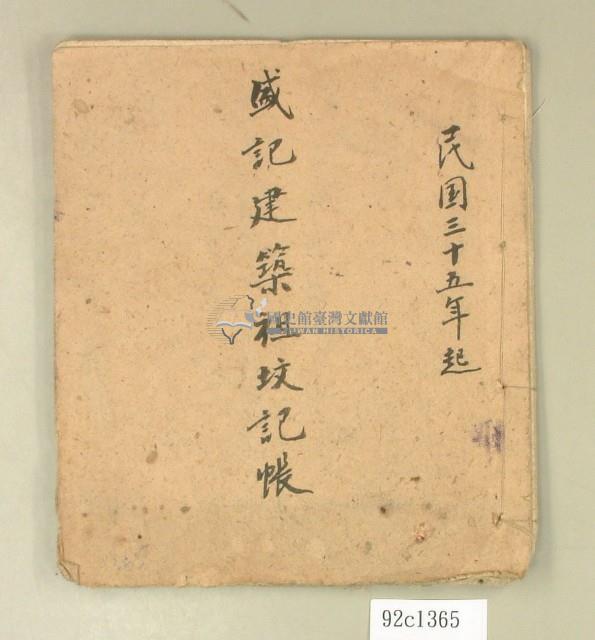 民国三十五年起
盛記建築祖坟記帳
國史館臺灣文獻館
TAIWAN HISTORICA
92c1365